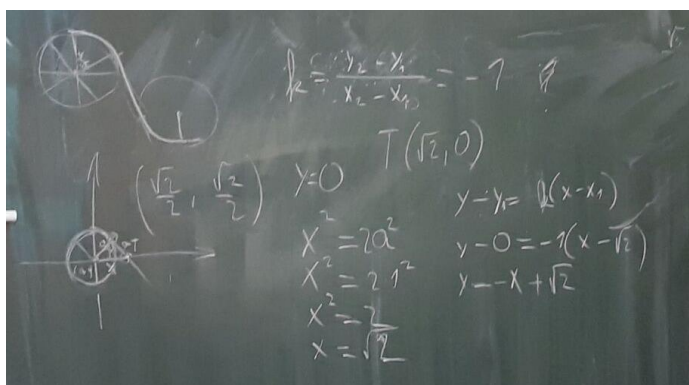 k = (y₂ - y₁)/(x₂ - x₁) = -1
T(√2, 0)
(√2/2, √2/2)
y=0
x² = 2a²
x² = 2 1²
x² = 2
x = √2
y - y₁ = k(x - x₁)
y - 0 = -1(x - √2)
y = -x + √2